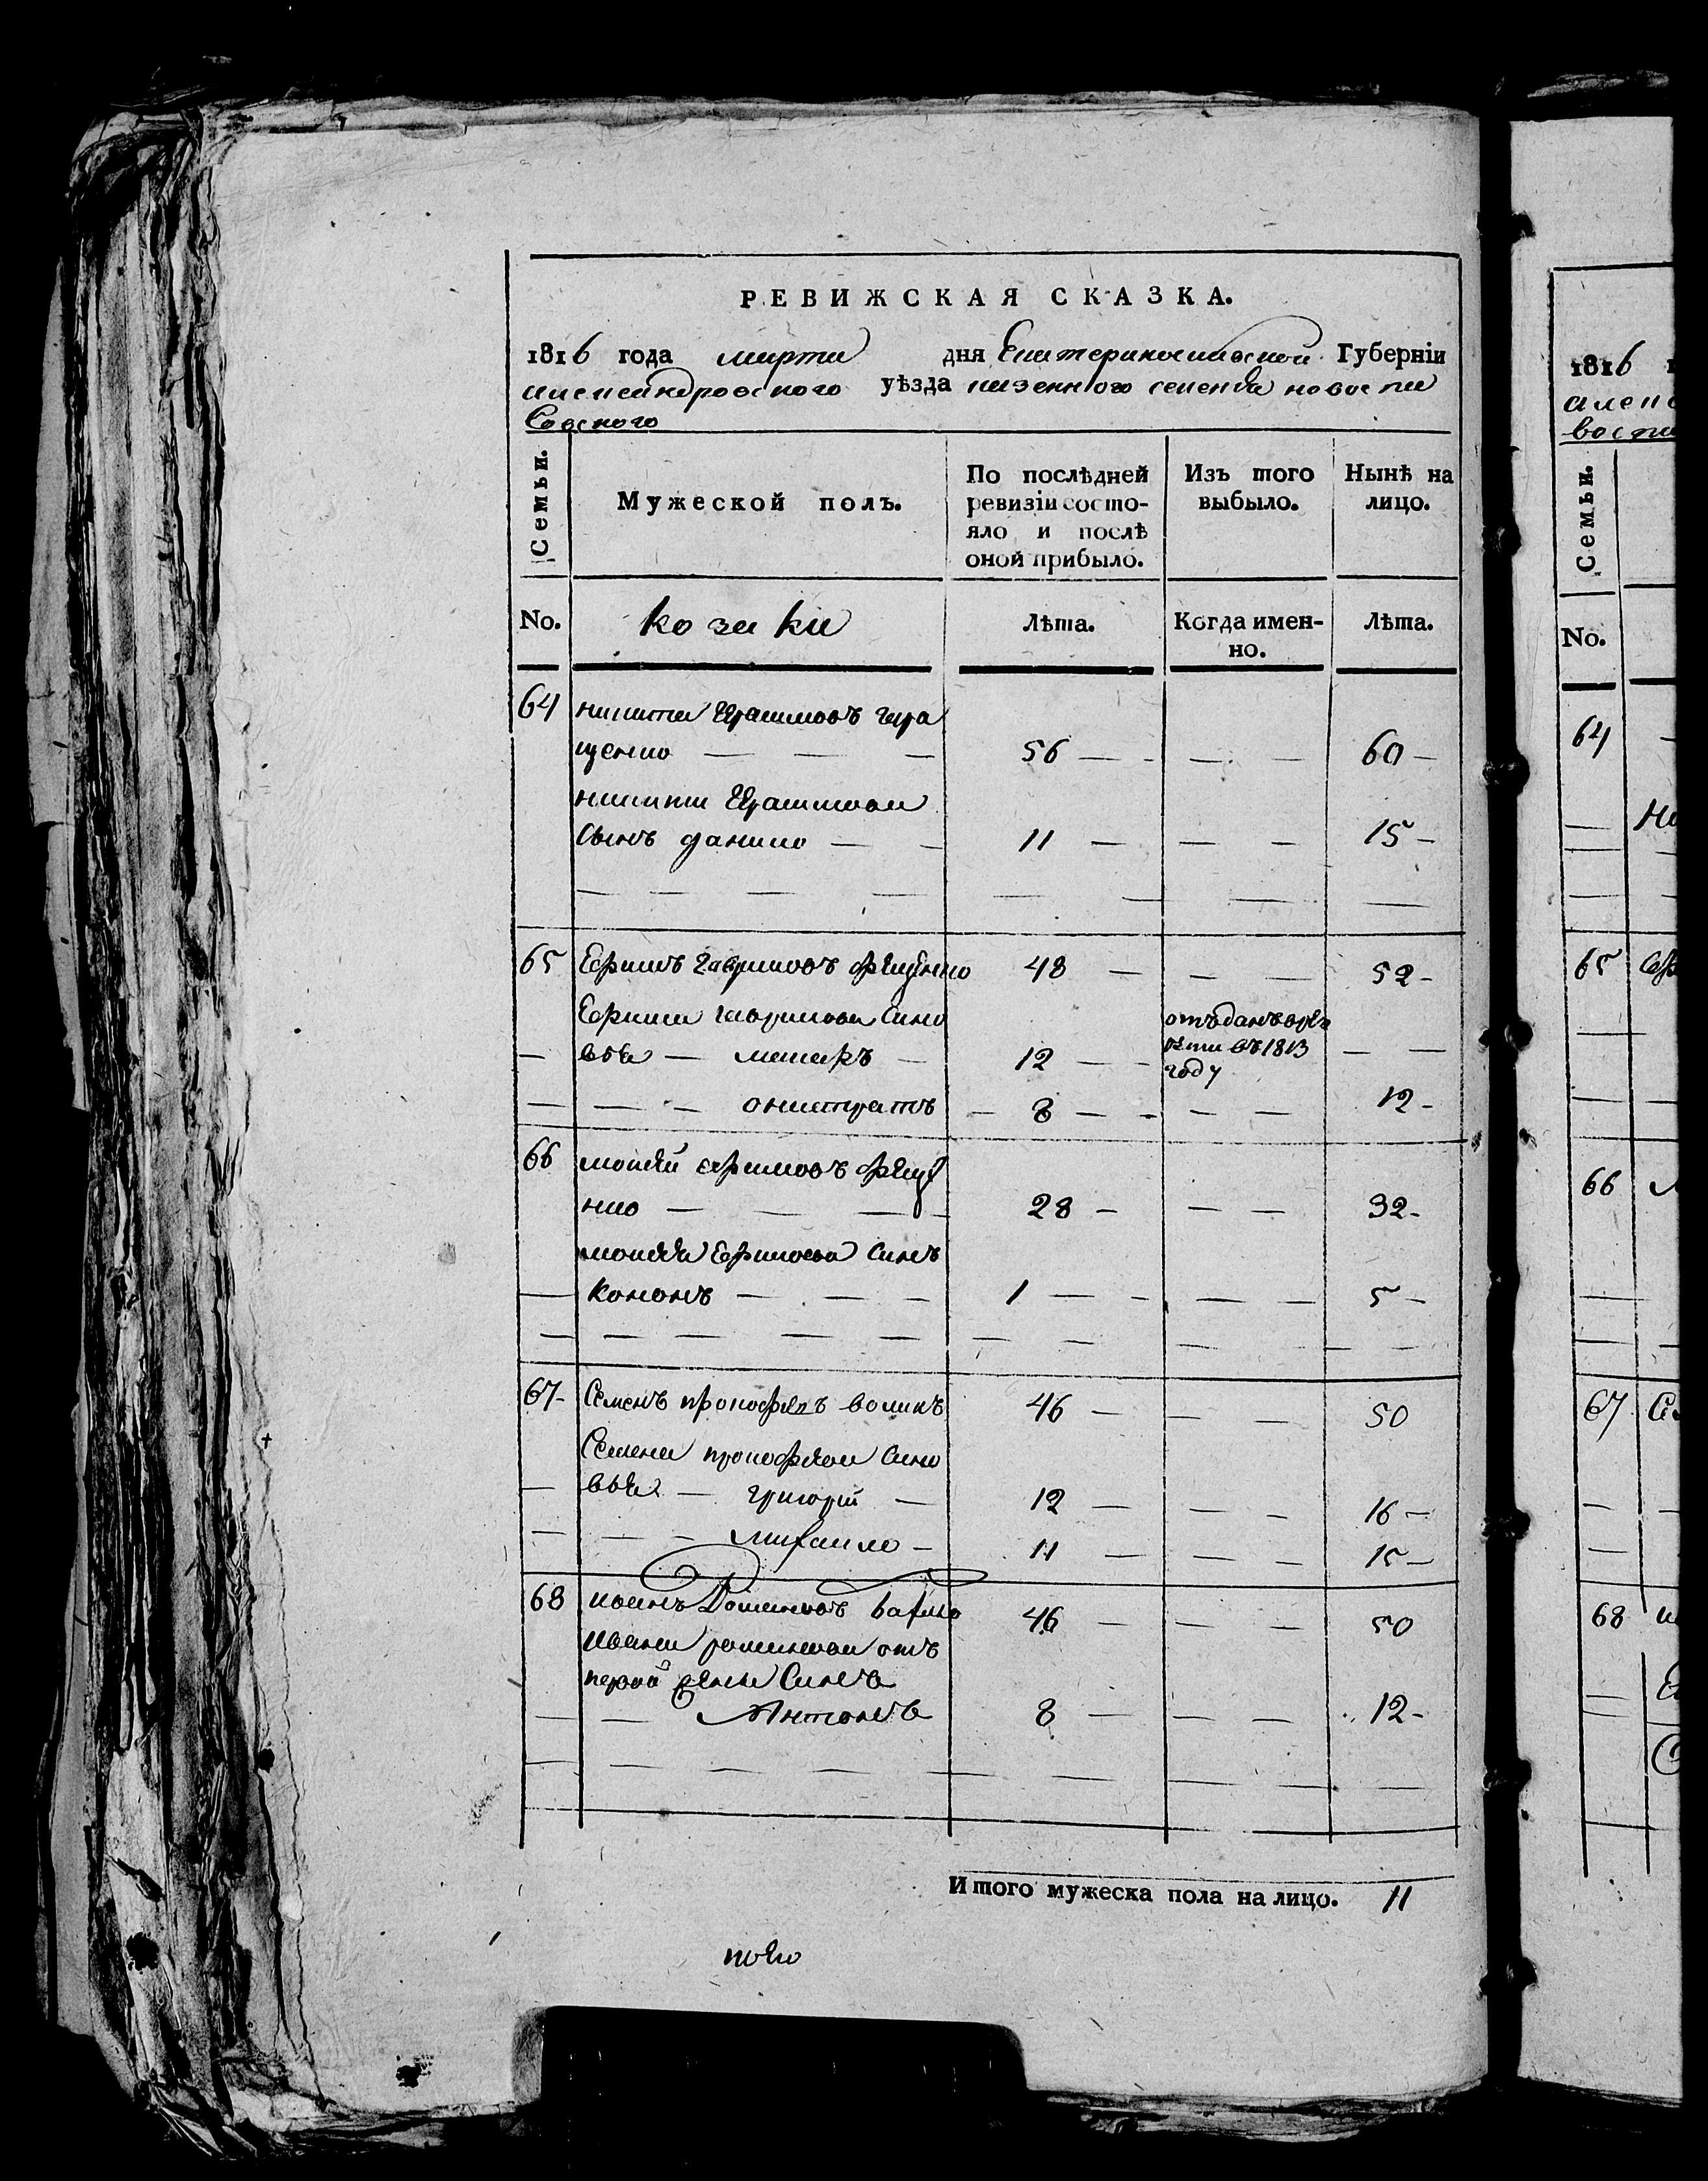 РЕВИЖСКАЯ СКАЗКА.
1816 года марта дня Екатеринославской Губернiи
александровского уѣзда казенного селения новоспа
совского
Семьи.
Мужеской полъ.
По послѣдней
ревизiи состо-
яло и послѣ
оной прибыло.
Изъ того
выбыло.
Нынѣ на
лицо.
No.
козаки
Лѣта.
Когда имен-
но.
Лѣта.
64 никита Герасимовъ гера
щенко — — — 56 — — — — 60 —
никиты Герасимова
Сынъ данило — — 11 — — — 15 —
65 Ефимъ гавриловъ 48 — — — 52 —
Ефима гаврилова Сино
вья — макаръ — 12 — отъданъ врек
руты въ 1813
году — —
— — — онистратъ — 8 — — — — 12 —
66 мокѣй ефимовъ
нко — — — 28 — — — 32 —
мокѣя Ефимова Синъ
— кононъ — — — 1 — — — — 5 —
67 — Семенъ прокофѣевъ воликъ 46 — — — 50
Семена прокофѣева Сино
— вья — григорiй — 12 — — — 16 —
— — — михаило — 11 — — — 15 —
68 иванъ Романовъ 46 — — — 50
Ивана романова отъ
первой жены Синъ
— — Антонъ 8 — — — 12 —
Итого мужеска пола на лицо. 11
1816
алекс
воспа
Семьи.
No.
64
65
66
67
68